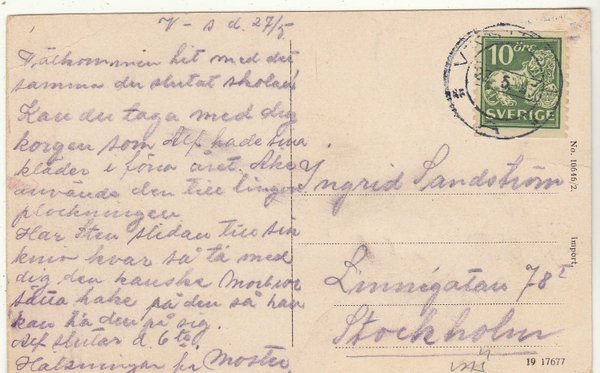 V - s d. 27/5
Välkommen hit med det
samma du slutat skolan
Kan du taga med dig
korgen som Alf hade sina
kläder i förra året. Åke
använde den till lingon
plockningen
Har Sten slidan till sin
kniv kvar så tå med
dig den kanske Morbror
sätta hake på den så han
kan ha den på sig.
Alf slutar d. 6te
Hälsningar fr Moster
10 ÖRE
SVERIGE
Yngrid Sandström
Linnégatan 78
Stockholm
No. 10646/2.
import.
19 17677